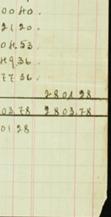 0040.
2120.
0453
4936.
7736.
280128
03.78 2803.78
0128